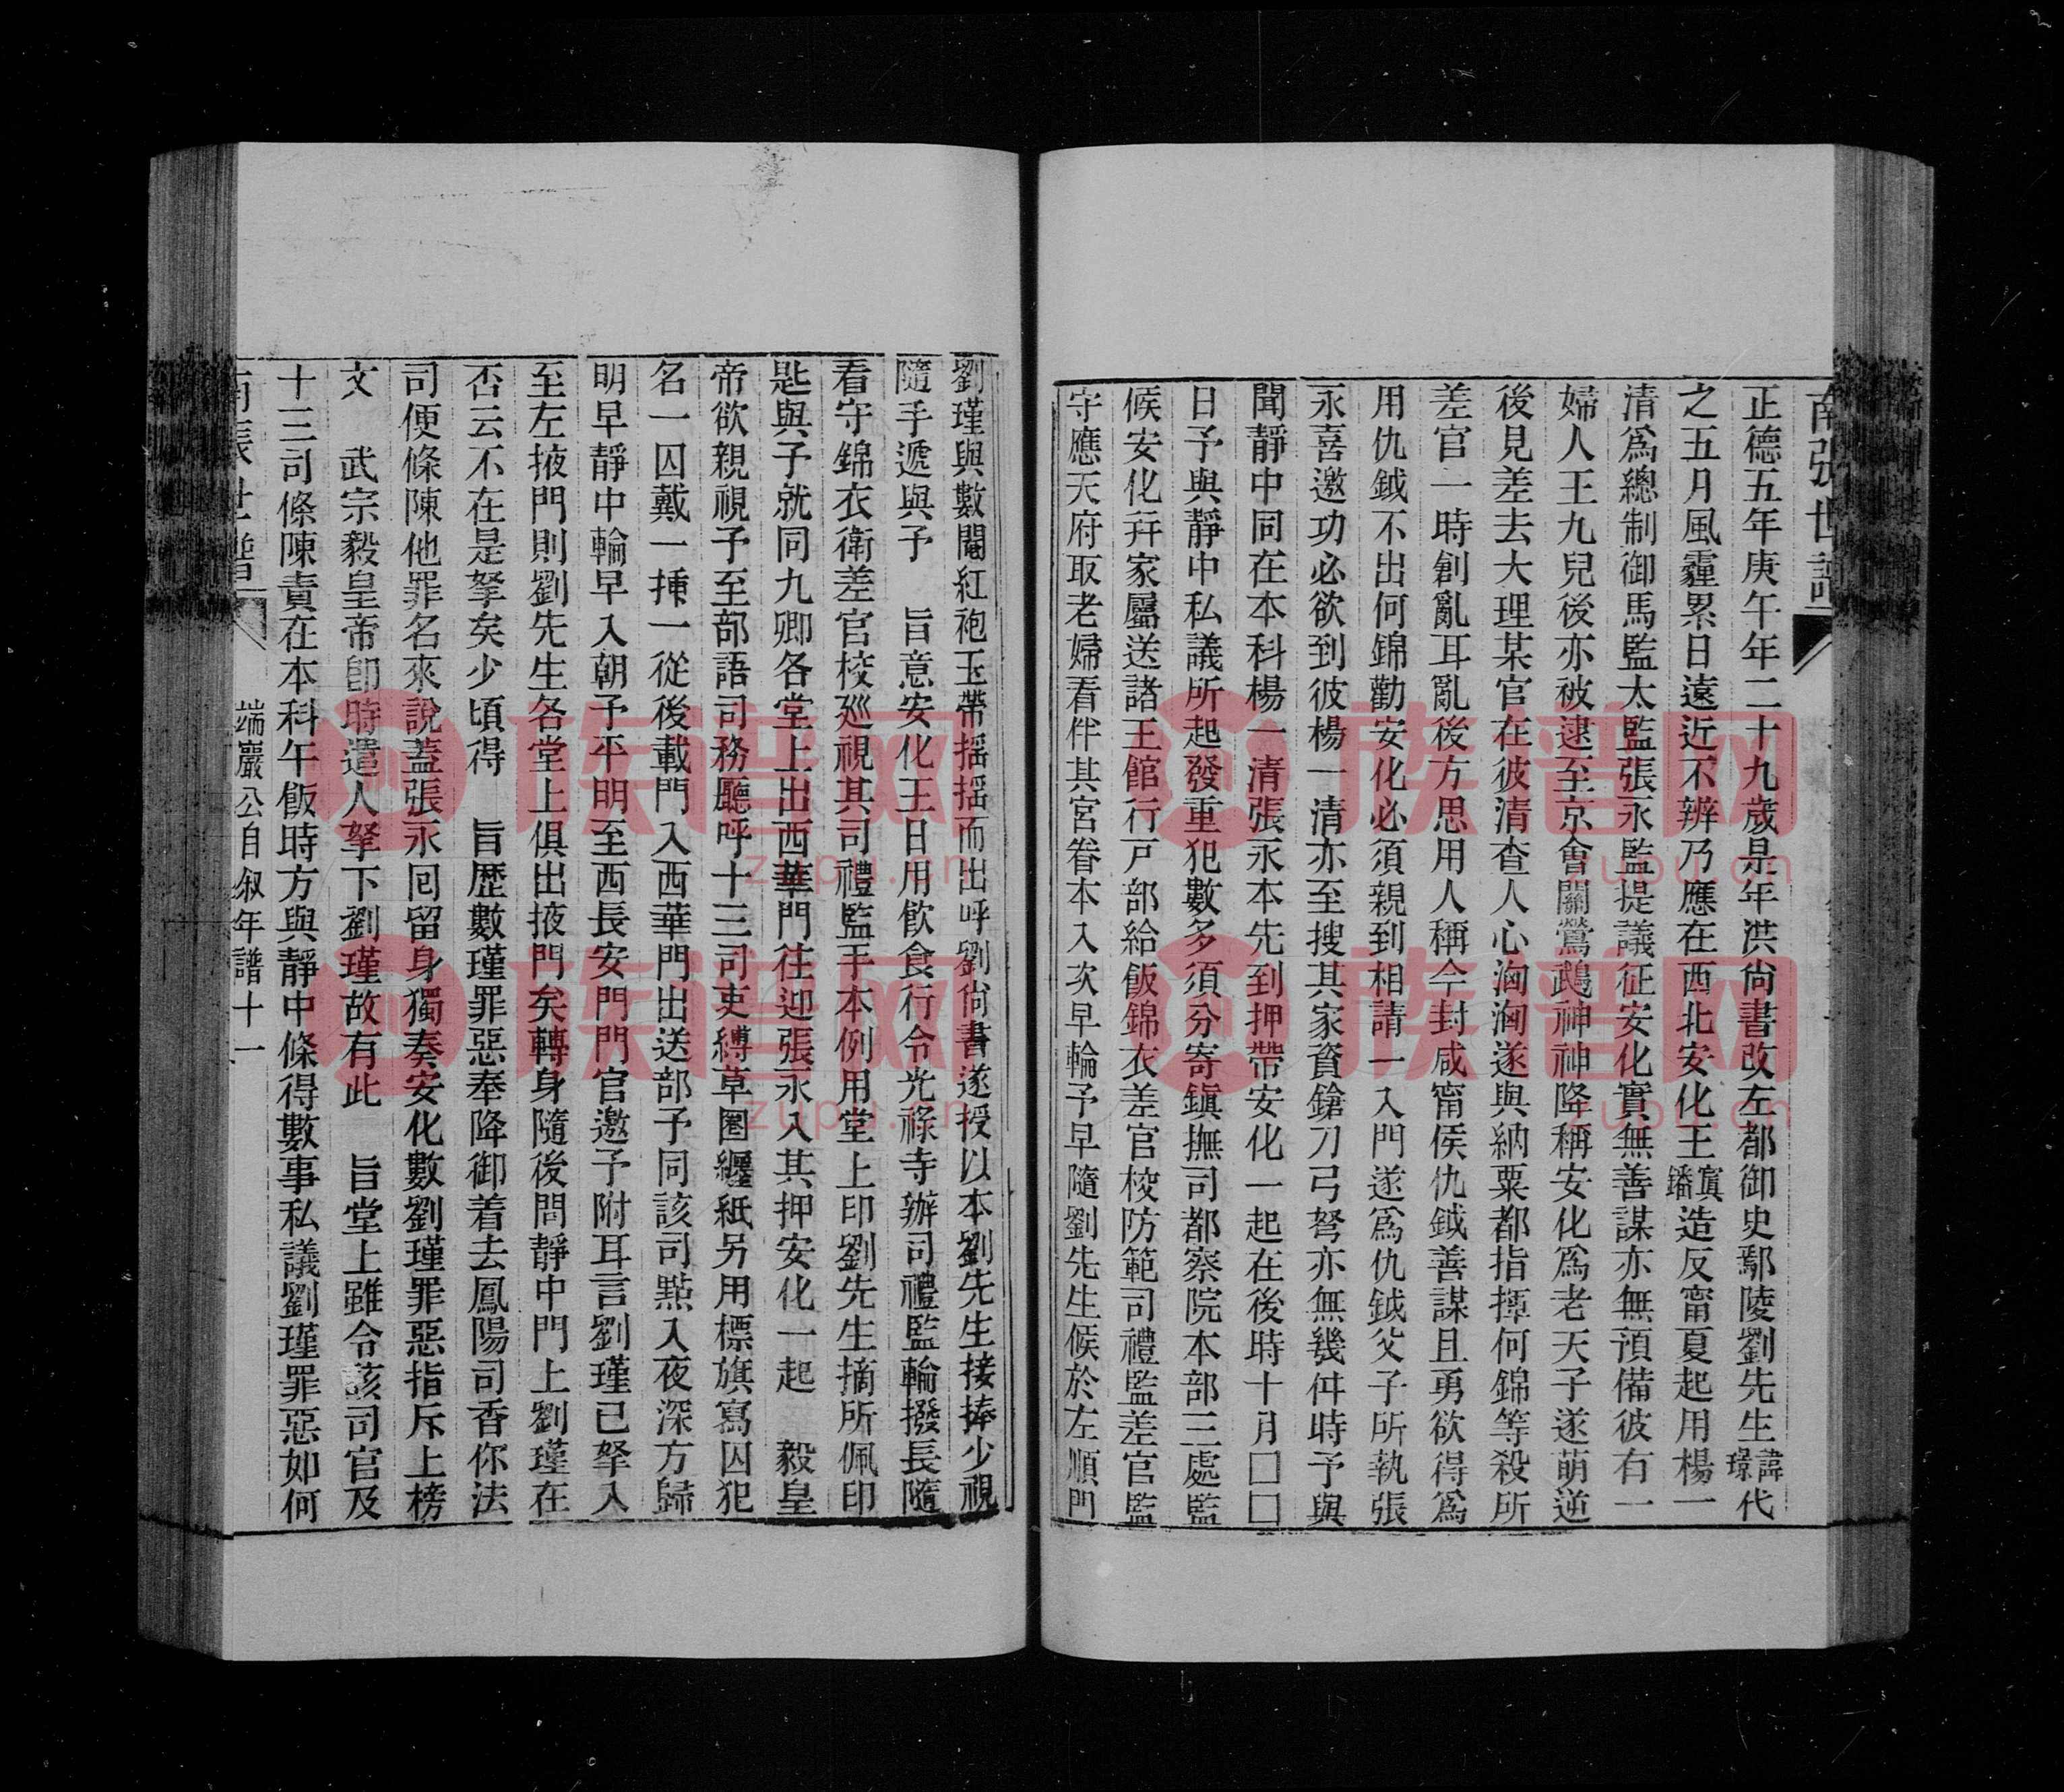 南張世譜
正德五年庚午年二十九歲是年洪尙書改左都御史鄢陵劉先生諱璟代
之五月風霾累日遠近不辨乃應在西北安化王寘鐇造反甯夏起用楊一
清爲總制御馬監太監張永監提議征安化實無善謀亦無預備彼有一
婦人王九兒後亦被逮至京會關鶯鵡神神降稱安化爲老天子遂萌逆
後見差去大理某官在彼清查人心洶洶遂與納粟都指揮何錦等殺所
差官一時創亂耳亂後方思用人稱今封咸甯侯仇鉞善謀且勇欲得爲
用仇鉞不出何錦勸安化必須親到相請一入門遂爲仇鉞父子所執張
永喜邀功必欲到彼楊一清亦至搜其家資鎗刀弓弩亦無幾件時予與
聞靜中同在本科楊一清張永本先到押帶安化一起在後時十月□□
日予與靜中私議所起發重犯數多須分寄鎭撫司都察院本部三處監
候安化幷家屬送諸王館行戸部給飯錦衣差官校防範司禮監差官監
守應天府取老婦看伴其宮眷本入次早輪予早隨劉先生候於左順門
劉瑾與數閹紅袍玉帶揺揺而出呼劉尙書遂授以本劉先生接捧少視
隨手遞與予 旨意安化王日用飮食行令光祿寺辦司禮監輪撥長隨
看守錦衣衛差官校廵視其司禮監手本例用堂上印劉先生摘所佩印
匙與予就同九卿各堂上出西華門往迎張永入其押安化一起 毅皇
帝欲親視予至部語司務廳呼十三司吏縛草圏纒紙另用標旗寫囚犯
名一囚戴一揷一從後載門入西華門出送部予同該司㸃入夜深方歸
明早靜中輪早入朝予平明至西長安門門官邀予附耳言劉瑾已拏入
至左掖門則劉先生各堂上俱出掖門矣轉身隨後問靜中門上劉瑾在
否云不在是拏矣少頃得 旨歷數瑾罪惡奉降御着去鳳陽司香你法
司便條陳他罪名來說蓋張永囘留身獨奏安化數劉瑾罪惡指斥上榜
文 武宗毅皇帝卽時遣人拏下劉瑾故有此 旨堂上雖令該司官及
十三司條陳責在本科午飯時方與靜中條得數事私議劉瑾罪惡如何
南張世譜 端巖公自叙年譜十一
族谱网
zupu.cn
族谱网
zupu.cn
族谱网
zupu.cn
族谱网
zupu.cn